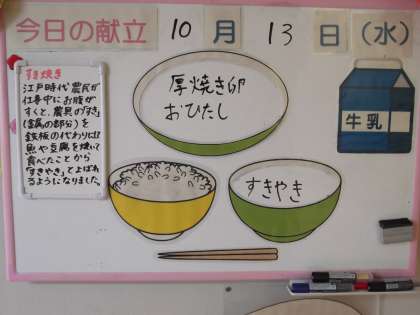 今日の献立 10月13日(水)
すき焼き
江戸時代、農民が
仕事中にお腹が
すくと、農具の「すき」
(金属の部分)を
鉄板の代わりに
魚や豆腐を焼いて
食べたことから
「すきやき」とよばれ
るようになりました。
厚焼き卵
おひたし
牛乳
すきやき